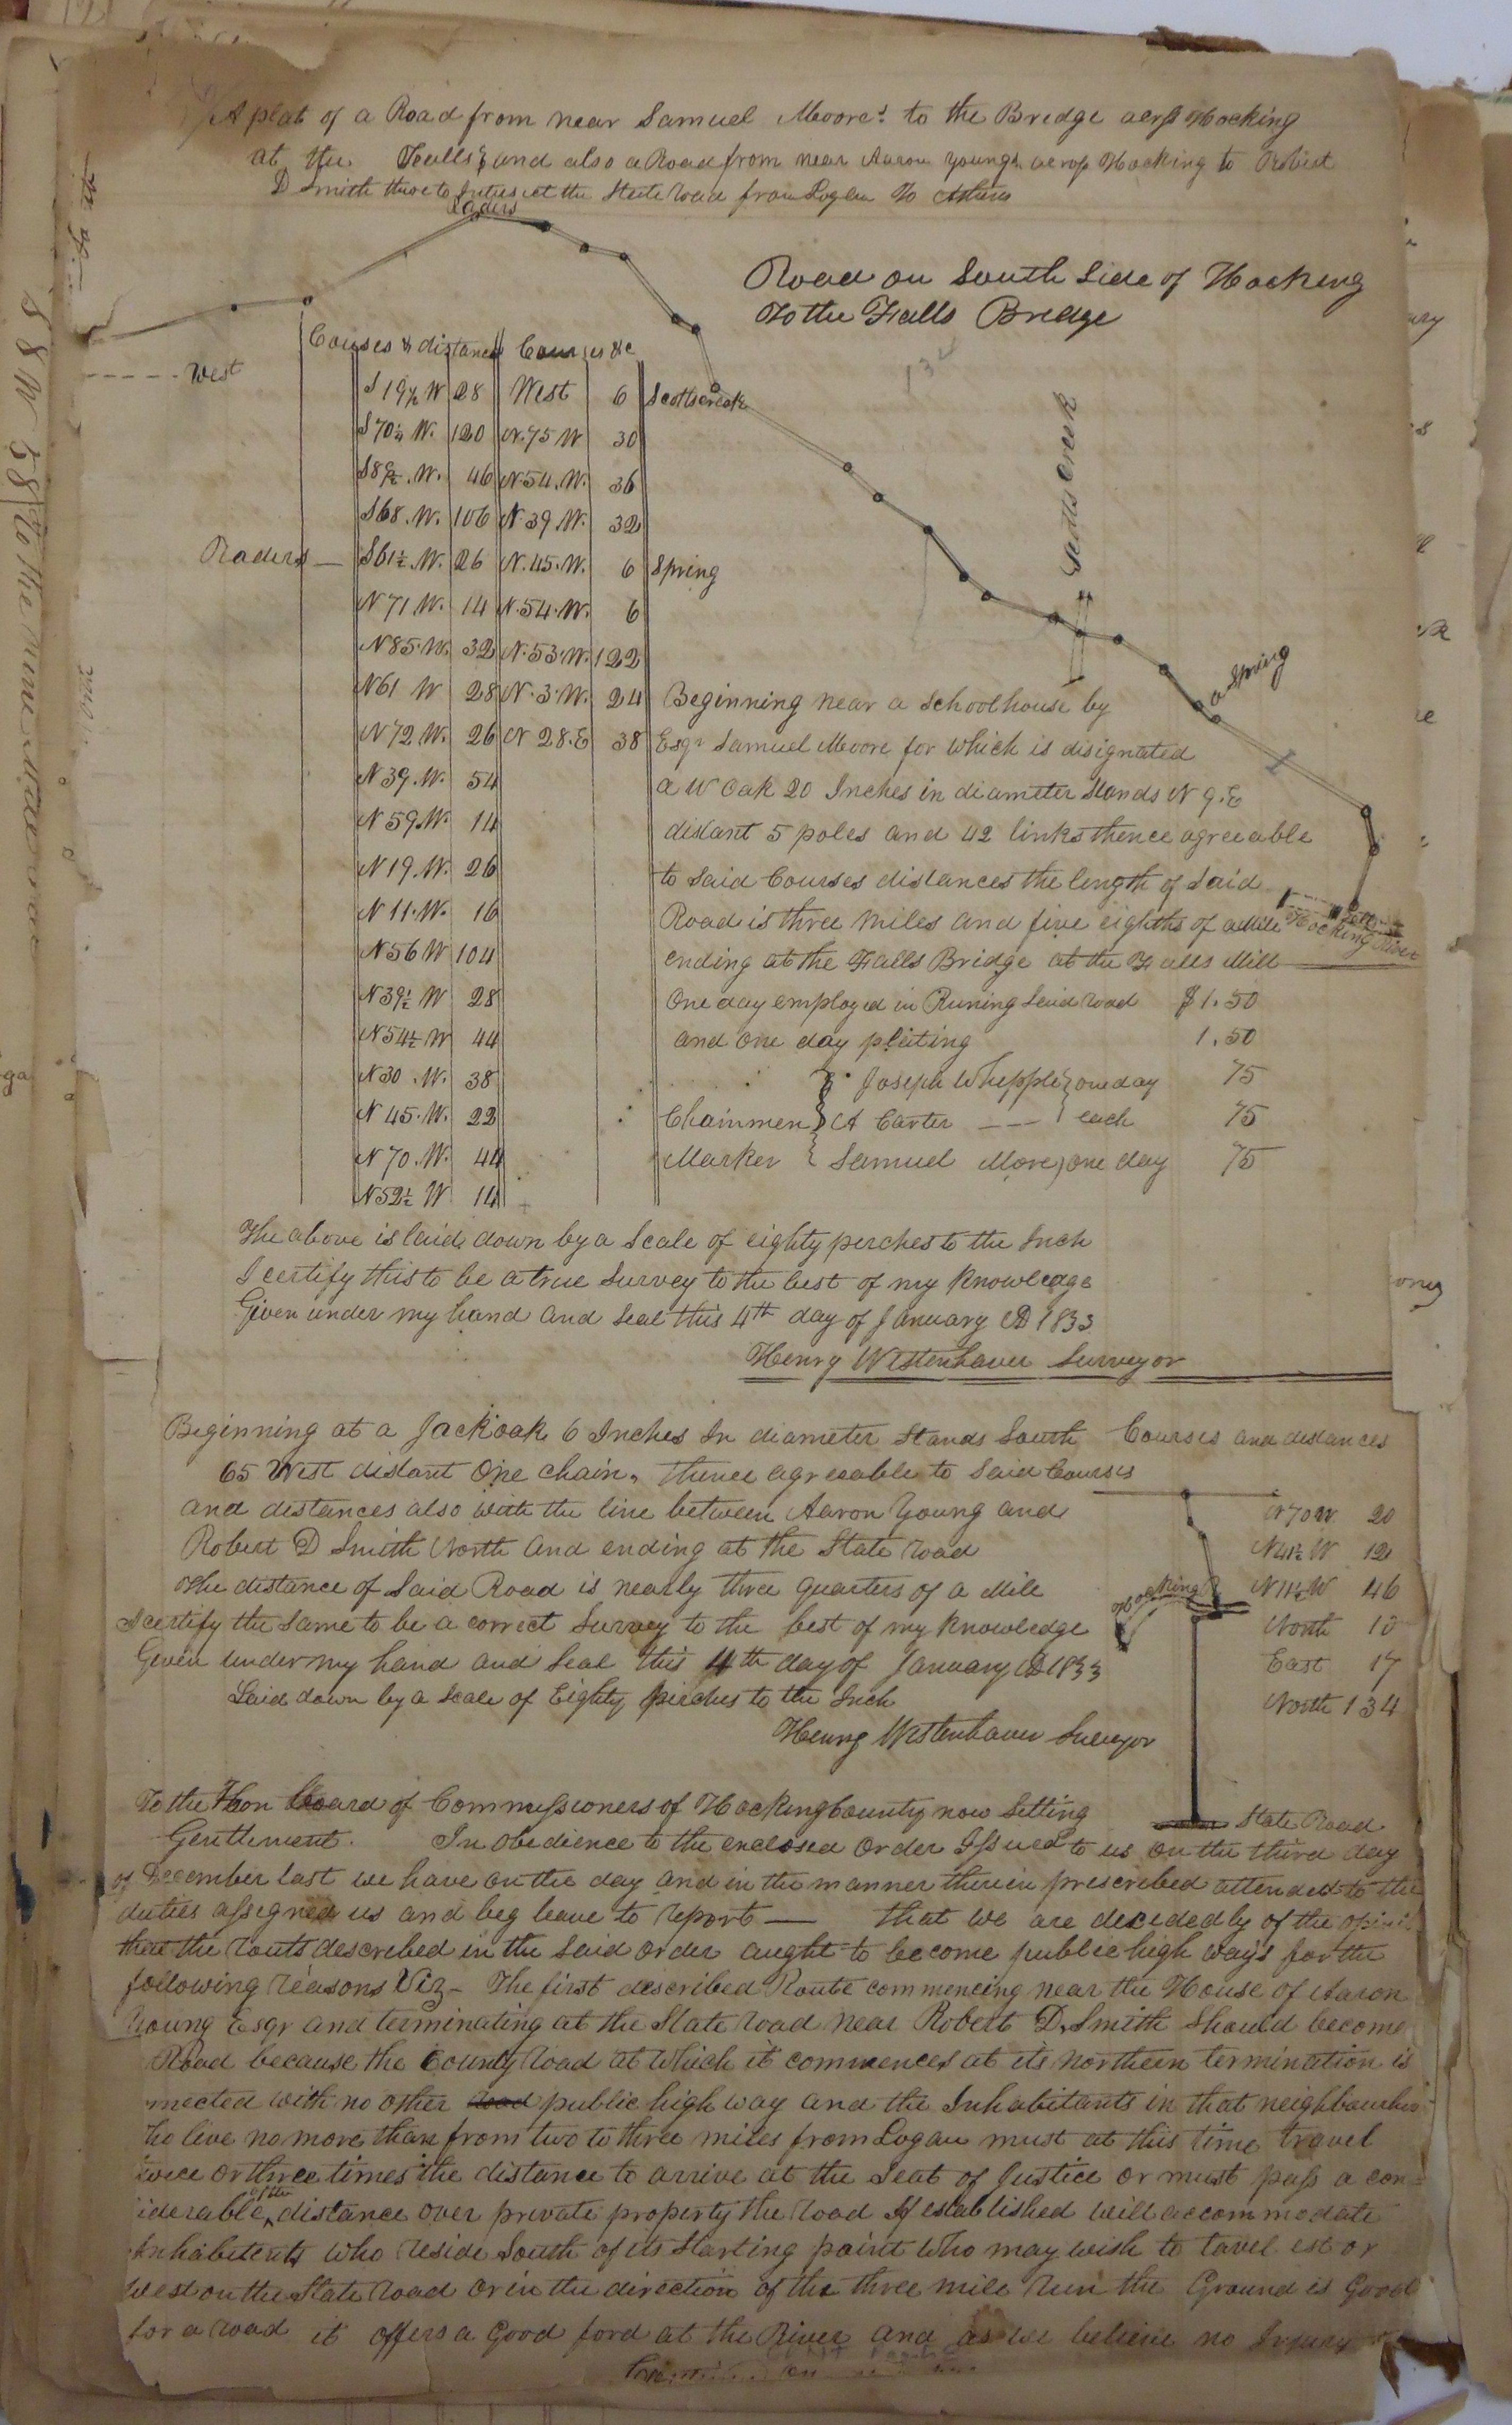 A plat of a Road from near Samuel Moores to the Bridge acrss Hocking
at the Falls & and also a Road from near Aaron Youngs acrss Hocking to Robert
D Smith thre to Intersect the State road from Logan To Athens
Raders
Road on South Side of Hocking
To the Falls Bridge
West
Courses & distances Courses &c
S 19½ W 28 West 6 Scottscreek
S 70¼ W. 120 N. 75 W 30
S 8½ . W. 46 N. 54. W. 36
S 68. W. 106 N 39. W. 32
Raders — S 61½. W. 26 N. 45. W. 6 Spring
N 71 W. 14 N. 54. W. 6
N 85. W. 32 N. 53. W. 122
N 61 W 28 N. 3. W. 24
N 72. W. 26 N 28. E 38
N 39. W. 54
N 59. W. 14
N 19. W. 26
N 11. W. 16
N 56 W 104
N 39½ W 28
N 54½ W 44
N 30 . W. 38
N 45. W. 22
N 70. W. 44
N 52½ W 14
Scotts creek
a Spring
Beginning near a Schoolhouse by
Esqr Samuel Moore for which is disignated
a W Oak 20 Inches in diameter Stands N 9. E
distant 5 poles and 42 links thence agreeable
to Said Courses distances the length of Said
Road is three Miles and five eighths of a Mile
ending at the Falls Bridge at the Falls Mill
Hocking River
One day employed in Runing Said road $1.50
and one day platting 1.50
Joseph Whipple } one day 75
Chainmen } A Carter --- } each 75
Marker { Samuel More, one day 75
The above is laid down by a Scale of eighty perches to the Inch
I certify this to be a true Survey to the best of my Knowledge
Given under my hand and Seal this 4th day of January AD 1833
Henry Westenhaver Surveyor
Beginning at a Jackoak 6 Inches In diameter Stands South
65 West distant One chain, thence agreeable to Said Courses
and distances also with the line between Aaron Young and
Robert D Smith North and ending at the State road
The distance of Said Road is nearly three quarters of a Mile
I certify the Same to be a correct Survey to the best of my Knowledge
Given under my hand and Seal this 4th day of January AD 1833
Laid down by a Scale of Eighty pirches to the Inch
Henry Westenhaver Surveyor
Courses and distances
N 70 W 20
N 41½ W 12
N 11½ W 46
North 10
East 17
North 134
Hocking
State Road
To the Hon Board of Commissioners of Hocking County now Sitting
Gentlement. In obedience to the enclosed Order Issued to us on the third day
of December last we have on the day and in the manner therein prescribed attended to the
duties assigned us and beg leave to report — that we are decidedly of the
that the routs described in the Said order aught to become public high ways for the
following reasons Viz - The first described Route commencing near the House of Aaron
Young Esqr and terminating at the State road near Robert D. Smith Should become
Road because the County road at which it commences at its northern termination is
nnected with no other public high way and the Inhabitants in that neighbourho
ho live no more than from two to three miles from Logan must at this time travel
wice or three times the distance to arrive at the Seat of Justice or must pass a con=
iderable of the distance over private property the road If established will accommodate
Inhabitents who reside South of its Starting point who may wish to tavel est or
West on the State road or in the direction of the three mile run the Ground is Good
for a road it offers a Good ford at the River and as we believe no Injury